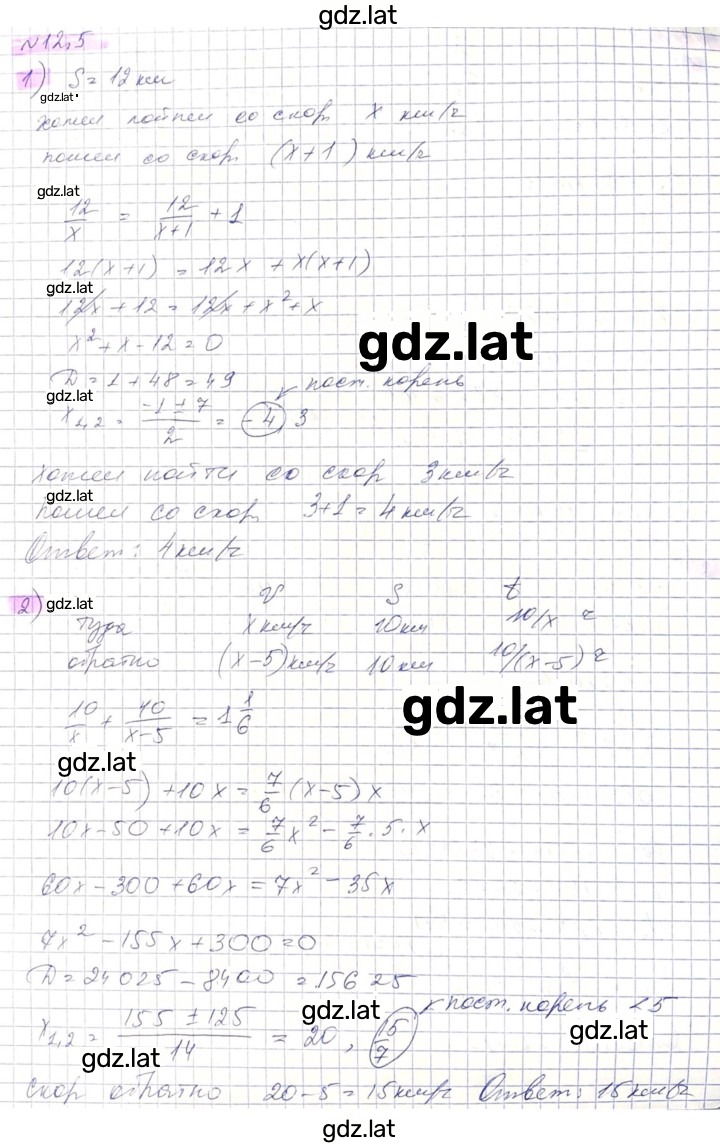 gdz.lat
№12,5
1) S = 12 км
gdz.lat
хотел пойти со скор x км/ч
пошел со скор (x+1) км/ч
gdz.lat
12/x = 12/(x+1) + 1
12(x+1) = 12x + x(x+1)
gdz.lat
12x + 12 = 12x + x² + x
x² + x - 12 = 0
gdz.lat
D = 1 + 48 = 49 пост. корень
gdz.lat
x1,2 = (-1 ± 7)/2 = -4, 3
хотел пойти со скор 3 км/ч
gdz.lat
пошел со скор 3+1 = 4 км/ч
Ответ: 4 км/ч
2) gdz.lat V S t
туда x км/ч 10 км 10/x ч
обратно (x-5) км/ч 10 км 10/(x-5) ч
gdz.lat
10/x + 10/(x-5) = 1 1/6
gdz.lat
10(x-5) + 10x = 7/6 (x-5) x
10x - 50 + 10x = 7/6 x² - 7/6 · 5 · x
60x - 300 + 60x = 7x² - 35x
7x² - 155x + 300 = 0
D = 24025 - 8400 = 15625
пост. корень < 5
gdz.lat
x1,2 = (155 ± 125)/14 = 20, 15/7
gdz.lat
gdz.lat
скор обратно 20-5 = 15 км/ч Ответ: 15 км/ч
gdz.lat